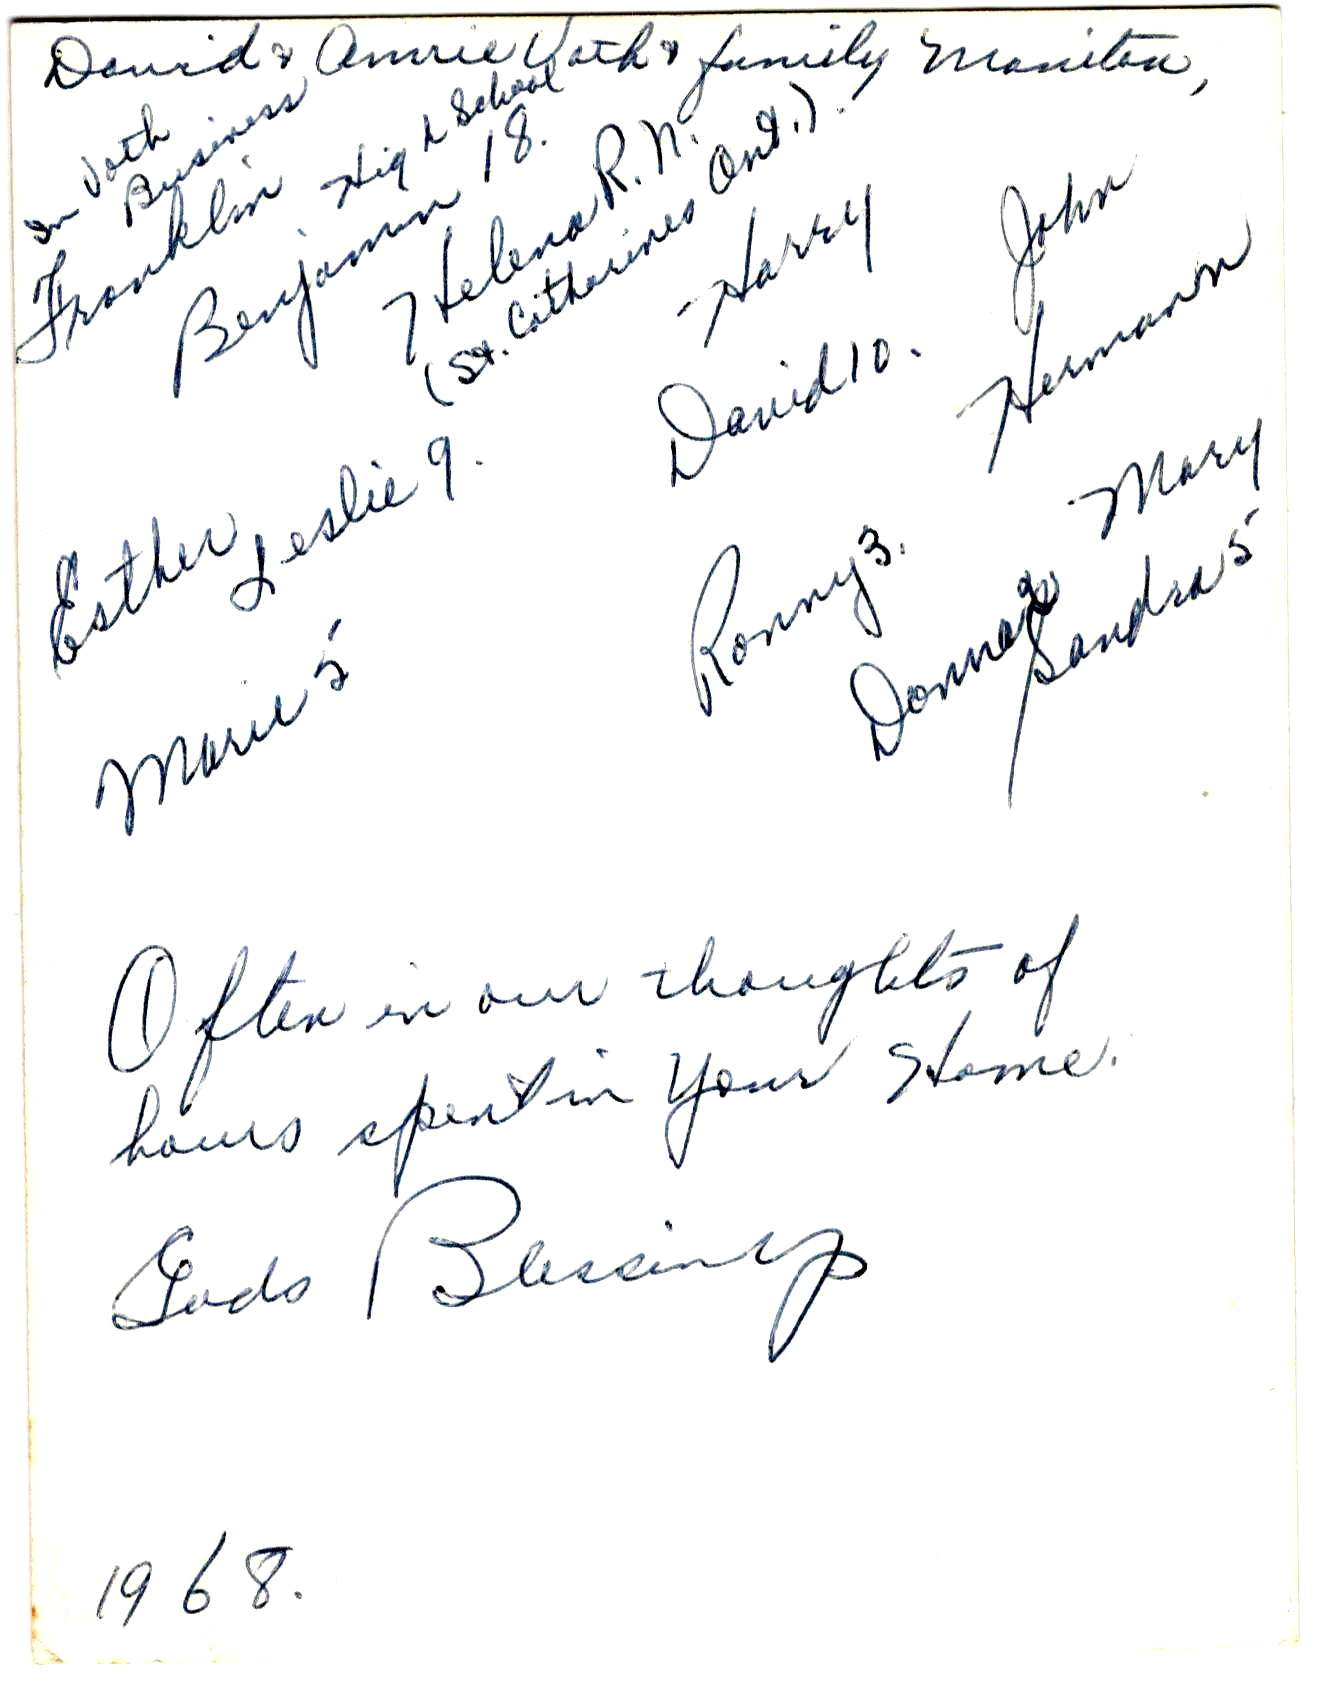 David & Annie Voth & family Manitou,
In Voth
Business
Franklin
High School
Benjamin 18.
Helena R.N.
(St. Catharines Ont.).
Harry
John
David 10.
Hermann
Esther
Leslie 9.
Mary
Ronny 3.
Donna
Sandra 5
Marie 5
Often in our thoughts of
hours spent in your Home.
Gods Blessings
1968.